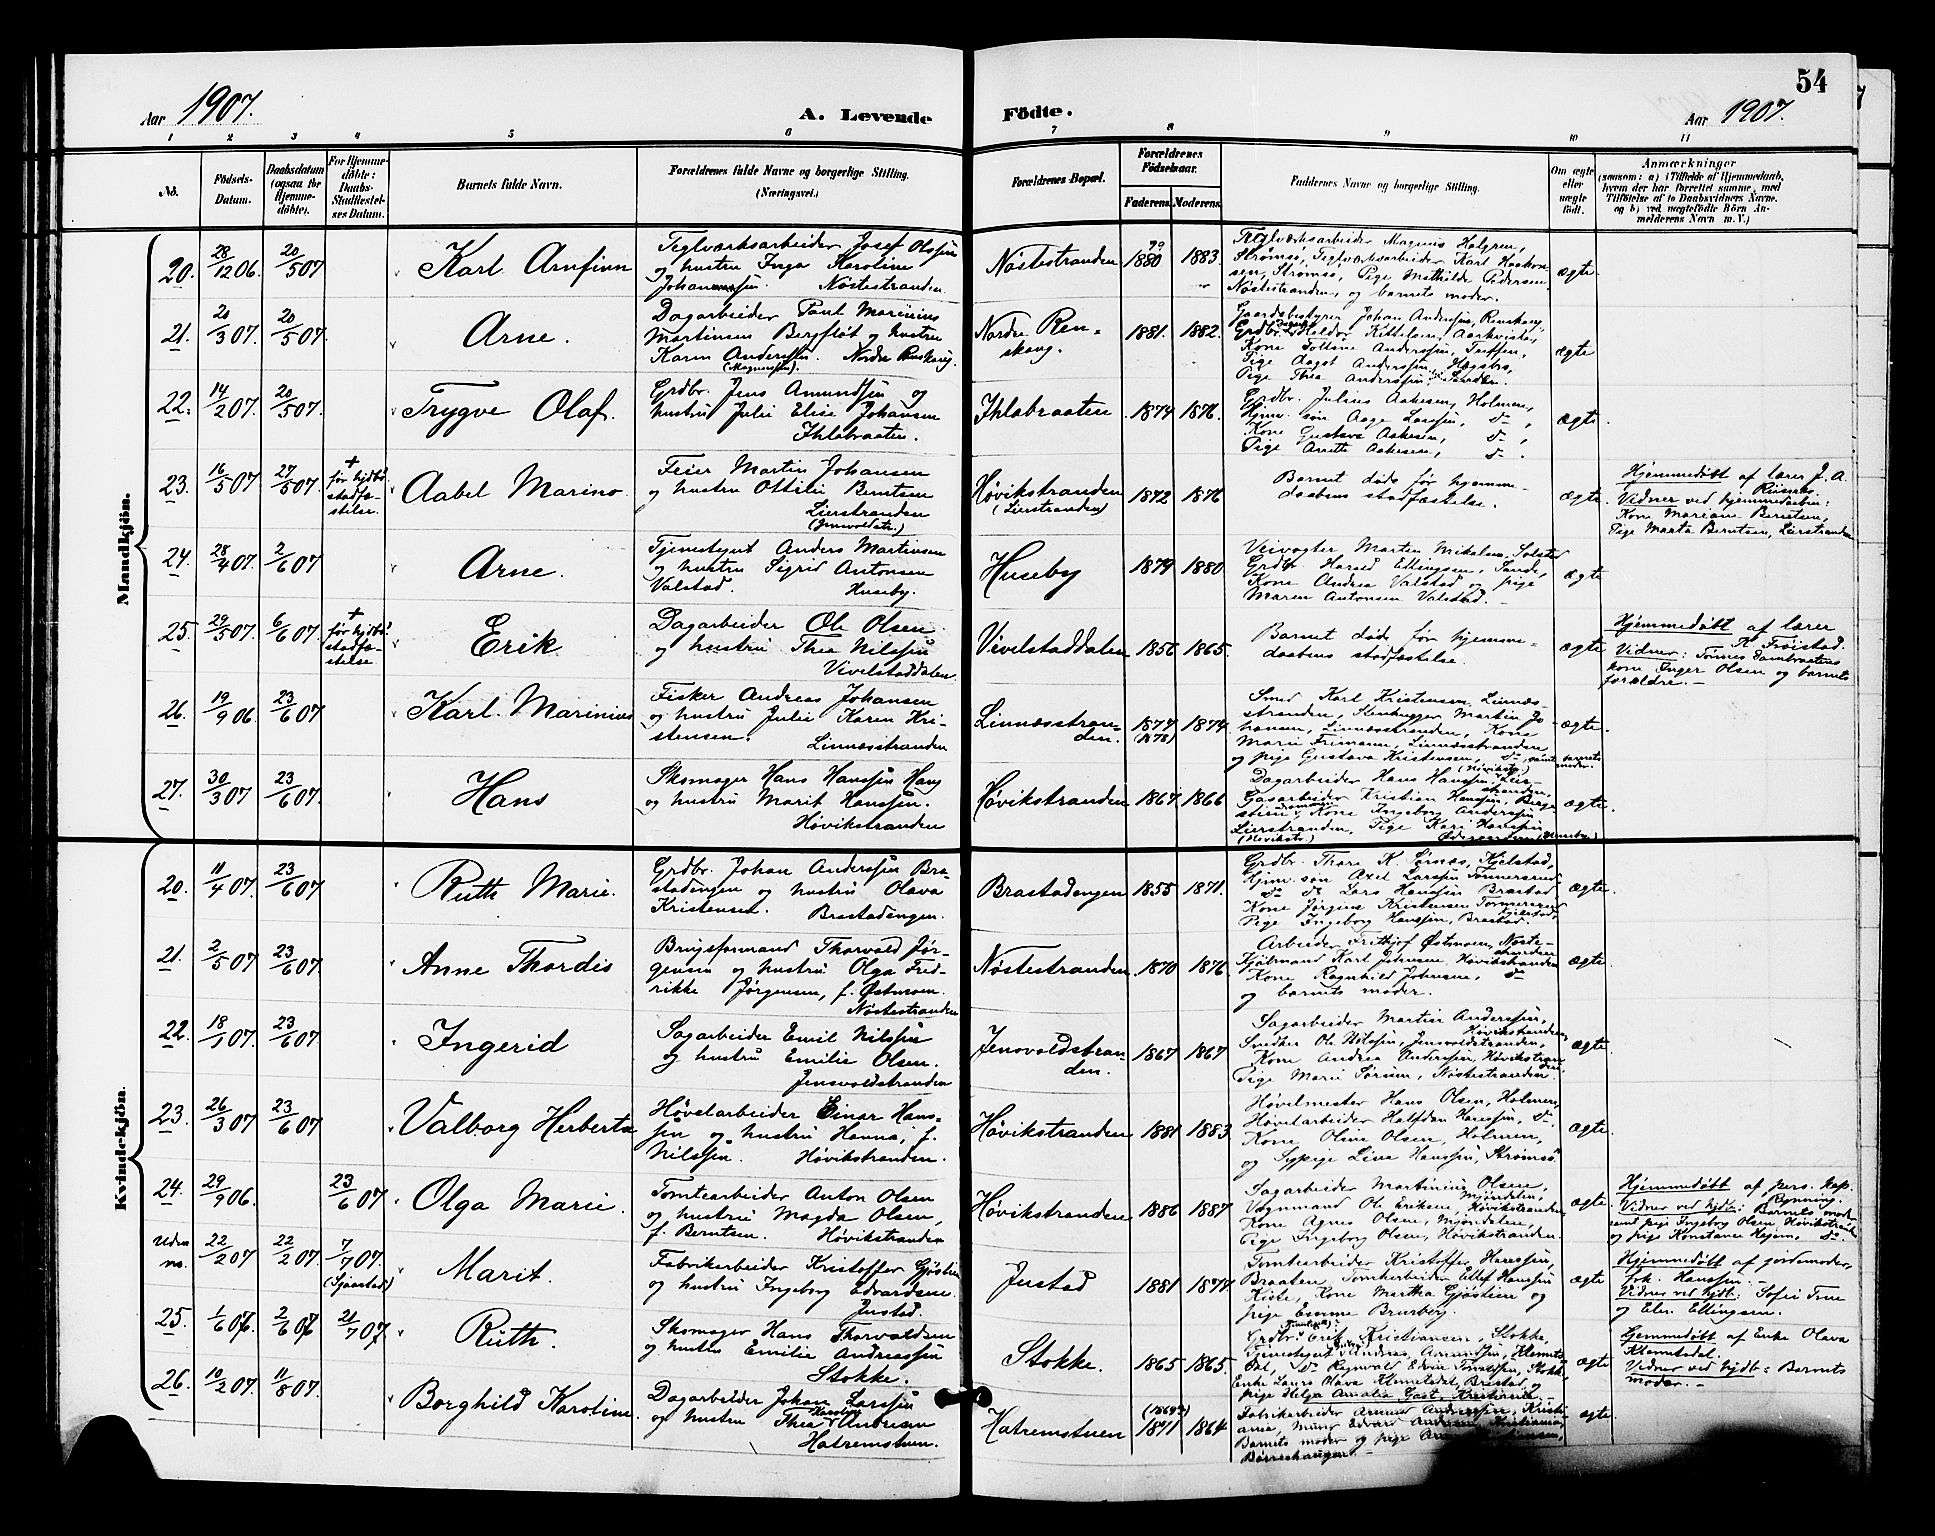 54
Aar 1907.
A. Levende Födte.
Aar 1907.
1 2 3 4 5 6 7 8 9 10 11
No. Födsels-Datum. Daabsdatum (ogsaa for Hjemme-döbte). For Hjemme-döbte: Daabs-Stadfæstel-ses Datum. Barnets fulde Navn. Forældrenes fulde Navne og borgerlige Stilling. (Næringsvei.) Forældrenes Bopæl. Forældrenes Födselsaar. Faderens. Moderens. Faddernes Navne og borgerlige Stilling. Om ægte eller uægte født. Anmærkninger (saasom: a) i Tilfælde af Hjemmedaab, hvem der har forrettet samme, med Tilföielse af to Daabsvidners Navne. og b) ved uægtefödte Börn An-melderens Navn m. V.)
Mandkjön.
20. 28/12 06. 20/5 07 Karl Arnfinn
Teglværksarbeider Josef Olssen
og hustru Inga Karoline
Johannessen. Nøstestranden
Nøstestranden 1880 1883.
Teglværksarbeider Magnus Holgren,
Strømsø, Teglværksarbeider Karl Haakon-
sen, Strømsø, Pige Mathilde Pedersen,
Nøstestranden, og barnets moder.
ægte
21. 20/3 07. 20/5 07. Arne.
Dagarbeider Paul Marinius
Martinsen Bergfløt og hustru
Karen Anderssen. Nordre Renskaug.
(Magnussen).
Nordre Ren-
skaug. 1881. 1882.
Gaardsbestyrer Johan Anderssen, Renskaug,
Kone Tolline Anderssen,
Pige Thea Anderssen
ægte
22. 14/2 07. 20/5 07. Trygve Olaf.
Grdbr. Jens Amundsen og
hustru Julie Elise Johansen
Ihlabraaten.
Ihlabraaten 1874 1876.
Grdbr. Julius Aakesen, Holmen,
Hjmv. søn Aage Larssen, do,
Kone Gustava Aakesen, do,
Pige Anette Aakesen, do.
ægte.
23. 16/5 07. 27/5 07. + før hjdbs stadfæ-stelse. Aabel Marino
Feier Martin Johansen
og hustru Ottilie Berntsen
Lierstranden
(Jensvoldstr.)
Høvikstranden
(Lierstranden) 1872 1876
Barnet døde før hjemme-
daabens stadfæstelse.
ægte.
Hjemmedøbt af lærer J. A.
Riisnæs.
Vidner ved hjemmedaaben:
Kone Mariane Berntsen,
Pige Marta Berntsen, Lierstranden
24. 28/4 07. 2/6 07 Arne.
Tjenestegut Anders Martinsen
og hustru Sigrid Antonsen
Valstad. Huseby.
Huseby 1879 1880
Veivogter Martin Mikalsen, Solstad
Grdbr. Harald Ellingsen, Sande,
Kone Andrea Valstad og pige
Maren Antonsen Valstad.
ægte
25. 29/5 07. 6/6 07. + før hjdbs stadfæ-stelse Erik
Dagarbeider Ole Olsen
og hustru Thea Nilssen
Vivelstaddalen.
Vivelstaddalen 1856 1865.
Barnet døde før hjemme-
daabens stadfæstelse.
ægte.
Hjemmedøbt af lærer
K. Frøistad.
Vidner: Tønnes Tombraatens
kone Inger Olsen og barnets
forældre.
26. 19/9 06. 23/6 07 Karl Marinius
Fisker Andreas Johansen
og hustru Julie Karen Kri-
stensen. Linnæsstranden
Linnæsstran-
den. 1877 (1878) 1874.
Smed Karl Kristensen, Linnæs-
stranden, Stenhugger Martin Jo-
hansen, Linnæsstranden, Kone
Marie Frimann, Linnæsstranden
og pige Gustava Kristensen, do samt barnets
moder.
ægte.
27. 30/3 07 23/6 07. Hans
Skomager Hans Hanssen Haug
og hustru Marit Hanssen.
Høvikstranden
Høvikstranden 1867 1866
Dagarbeider Hans Hanssen, Lier-
stranden.
Gasarbeider Kristian Hanssen, Brage
Kone Ingeborg Anderssen
Lierstranden, Pige Kari Hanssen
ægte.
Kvindekjön.
20. 11/4 07. 23/6 07 Ruth Marie.
Grdbr. Johan Anderssen Bra-
stadengen og hustru Olava
Kristensen. Brastadengen.
Brastadengen 1855 1871.
Grdbr. Thore K. Kjelstad,
Hjmv. søn Axel Larssen Tømmersrud
do do Lars Hanssen Brastad
Kone Jørgine Kristensen Tømmersrud
Pige Ingeborg Hanssen, Brastad
ægte.
21. 2/5 07 23/6 07. Anne Thordis
Brugsformand Thorvald Jør-
gensen og hustru Olga Fred-
rikke Jørgensen, f. Østmoen.
Nøstestranden
Nøstestranden 1870 1876
Arbeider Frithjof Østmoen, Nøste-
stranden
Sjømand Karl Johnsen, Høvikstranden
Kone Ragnhild Johnsen, do
og barnets moder.
ægte.
22. 18/1 07. 23/6 07. Ingerid
Sagarbeider Emil Nilssen
og hustru Emilie Olsen.
Jensvoldstranden
Jensvoldstran-
den. 1867 1867
Sagarbeider Martin Anderssen,
Høvikstranden,
Snedker Ole Nilssen, Jensvoldstranden,
Kone Andrea Anderssen, Høvikstran-
den,
Pige Marie Sørum, Nøstestranden.
ægte.
23. 26/3 07 23/6 07 Valborg Herberta
Høvelarbeider Einar Hans-
sen og hustru Hanna, f.
Nilssen. Høvikstranden.
Høvikstranden 1881 1883
Høvelmester Hans Olsen, Holmen,
Høvelarbeider Halfdan Hanssen, do,
Kone Oline Olsen, Holmen,
og Sypige Lina Hanssen, Strømsø.
ægte.
24. 29/9 06. 23/6 07 Olga Marie.
Tomtearbeider Anton Olsen
og hustru Magda Olsen,
f. Berntsen. Høvikstranden
Høvikstranden 1886 1887
Sagarbeider Martinius Olsen,
Mjøndalen,
Vognmand Ole Eriksen, Høvikstranden
Kone Agnes Olsen, Mjøndalen,
Pige Ingeborg Olsen, Høvikstranden.
ægte.
Hjemmedøbt af pers. kap.
Rynning.
Vidner ved hjdb: Barnets moder
samt pige Ingeborg Olsen, Høvikstrand
og pige Konstance Hegem, do
Uden no. 22/2 07 22/2 07. 7/7 07. (Sjaastad) Marit.
Fabrikarbeider Kristoffer Gjøstien
og hustru Ingeborg Edvardsen.
Justad.
Justad 1881 1874
Tomtearbeider Kristoffer Hanssen,
Braaten, Tomtearbeider Ellef Hanssen
Kiste, Kone Martha Gjøstien og
pige Emma Brurberg.
ægte
Hjemmedøbt af jordemoder,
frk. Hanssen.
Vidner ved hjdb: Sofie True
og Elen Ellingsen.
25. 1/6 07. 2/6 07 21/7 07 Ruth.
Skomager Hans Thorvaldsen
og hustru Emilie Andreassen
Stokke.
Stokke. 1865 1865.
Grdbr. Erik Kristiansen, Stokke,
Tjenestegut Andreas Amundsen, Klemets-
dal,
Enke Laura Olava Klemetsdal, Brastad, og
pige Helga Amalia Gast, Kristiania
ægte
Hjemmedøbt af Enke Olava
Klemetsdal.
Vidner ved hjdb: Barnets
moder.
26. 10/2 07. 11/8 07. Borghild Karoline.
Dagarbeider Johan Larssen
og hustru Thea Karoline Andersen
Hatremstuen.
Hatremstuen 1871 1864
Fabrikarbeider
Barnets moder og pige
Børreshaugen.
ægte.